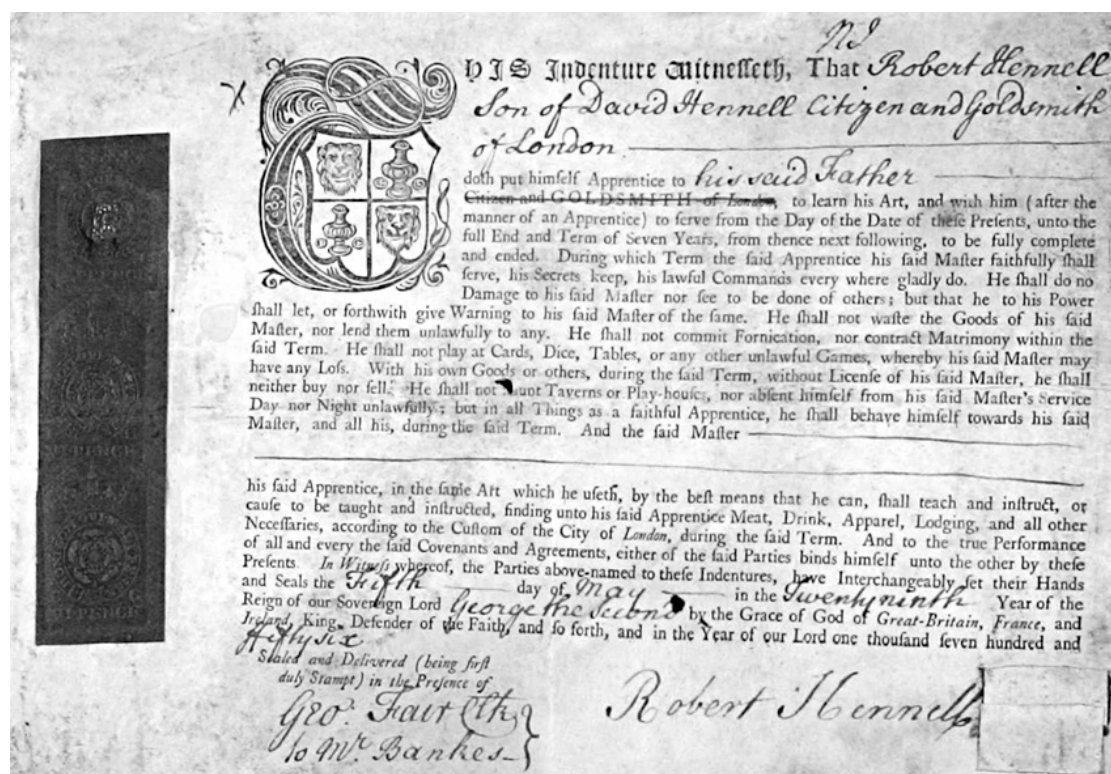 NI
THIS Indenture Witnesseth, That Robert Hennell
Son of David Hennell Citizen and Goldsmith
of London
doth put himself Apprentice to his said Father
Citizen and GOLDSMITH of London, to learn his Art, and with him (after the
manner of an Apprentice) to ſerve from the Day of the Date of theſe Preſents, unto the
full End and Term of Seven Years, from thence next following, to be fully complete
and ended. During which Term the ſaid Apprentice his ſaid Maſter faithfully ſhall
ſerve, his Secrets keep, his lawful Commands every where gladly do. He ſhall do no
Damage to his ſaid Maſter nor ſee to be done of others; but that he to his Power
ſhall let, or forthwith give Warning to his ſaid Maſter of the ſame. He ſhall not waſte the Goods of his ſaid
Maſter, nor lend them unlawfully to any. He ſhall not commit Fornication, nor contract Matrimony within the
ſaid Term. He ſhall not play at Cards, Dice, Tables, or any other unlawful Games, whereby his ſaid Maſter may
have any Loſs. With his own Goods or others, during the ſaid Term, without Licenſe of his ſaid Maſter, he ſhall
neither buy nor ſell. He ſhall not haunt Taverns or Play-houſes, nor abſent himſelf from his ſaid Maſter's Service
Day nor Night unlawfully; but in all Things as a faithful Apprentice, he ſhall behave himſelf towards his ſaid
Maſter, and all his, during the ſaid Term. And the ſaid Maſter
his ſaid Apprentice, in the ſame Art which he uſeth, by the beſt means that he can, ſhall teach and inſtruct, or
cauſe to be taught and inſtructed, finding unto his ſaid Apprentice Meat, Drink, Apparel, Lodging, and all other
Neceſſaries, according to the Cuſtom of the City of London, during the ſaid Term. And to the true Performance
of all and every the ſaid Covenants and Agreements, either of the ſaid Parties binds himſelf unto the other by theſe
Preſents. In Witneſs whereof, the Parties above-named to theſe Indentures, have Interchangeably ſet their Hands
and Seals the Fifth day of May in the Twenty ninth Year of the
Reign of our Sovereign Lord George the Second by the Grace of God of Great-Britain, France, and
Ireland, King, Defender of the Faith, and ſo forth, and in the Year of our Lord one thouſand ſeven hundred and
fifty six
Sealed and Delivered (being firſt
duly Stampt) in the Preſence of
Geo. Fair Clk
to Mr. Bankes
Robert Hennell